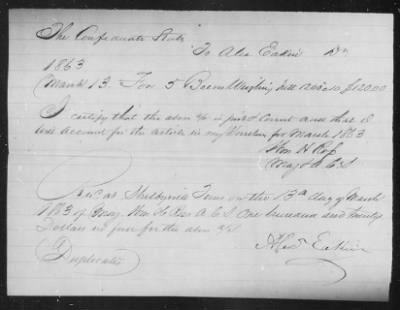 The Confederate States
To Alex Eakin Dr
1863
March 13. For 5 Beeves Weighing 1200 10 $120.00
I certify that the above a/c is just & correct and that I
will account for the articles in my Vouchers for March 1863
Wm H
Maj & A.C.S
Rec'd at Shelbyville Tenn on the 13th day of March
1863 of Maj. Wm H A.C.S. One hundred and twenty
Dollars in full for the above a/c
Alex Eakin
(Duplicates)